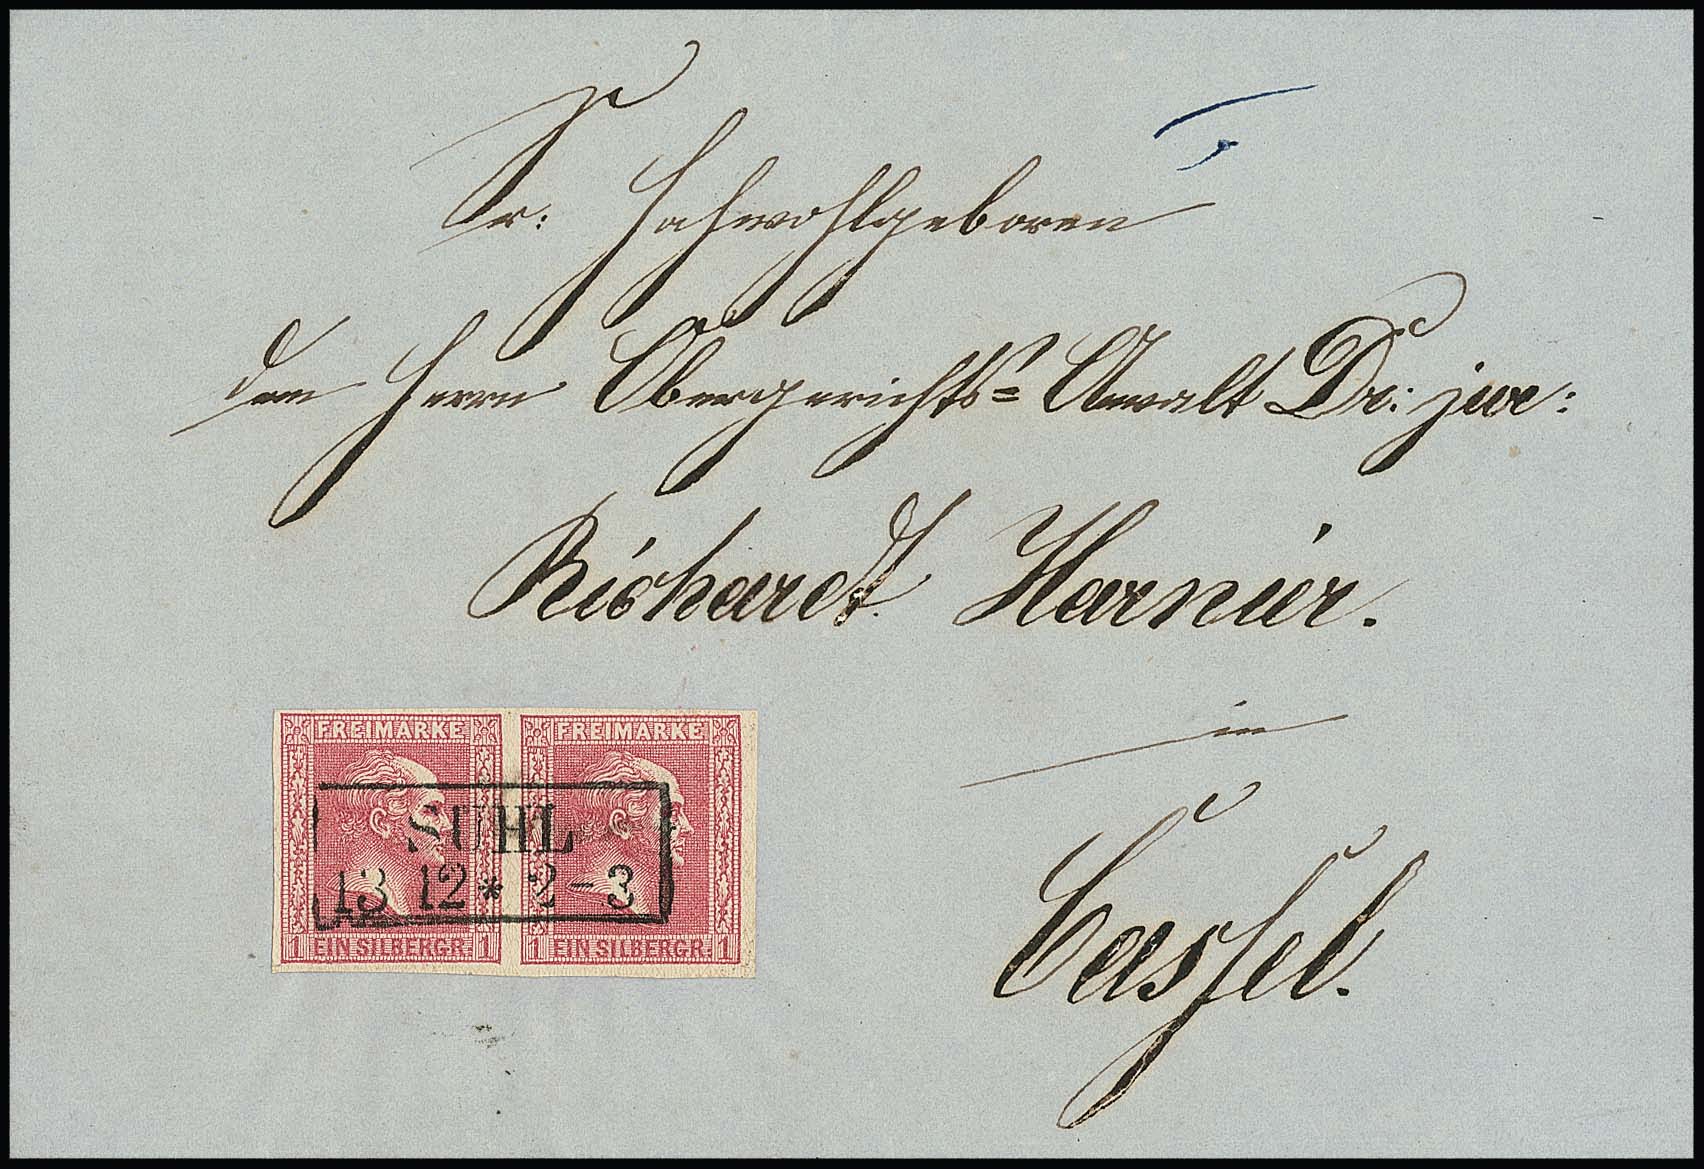 Sr: Hochwohlgeboren
dem Herrn Obergerichts= Anwalt Dr: jur:
Richardt Harnier.
in
Cassel.
FREIMARKE FREIMARKE
SUHL
13 12 * 2-3
1 EIN SILBERGR. 1 1 EIN SILBERGR. 1